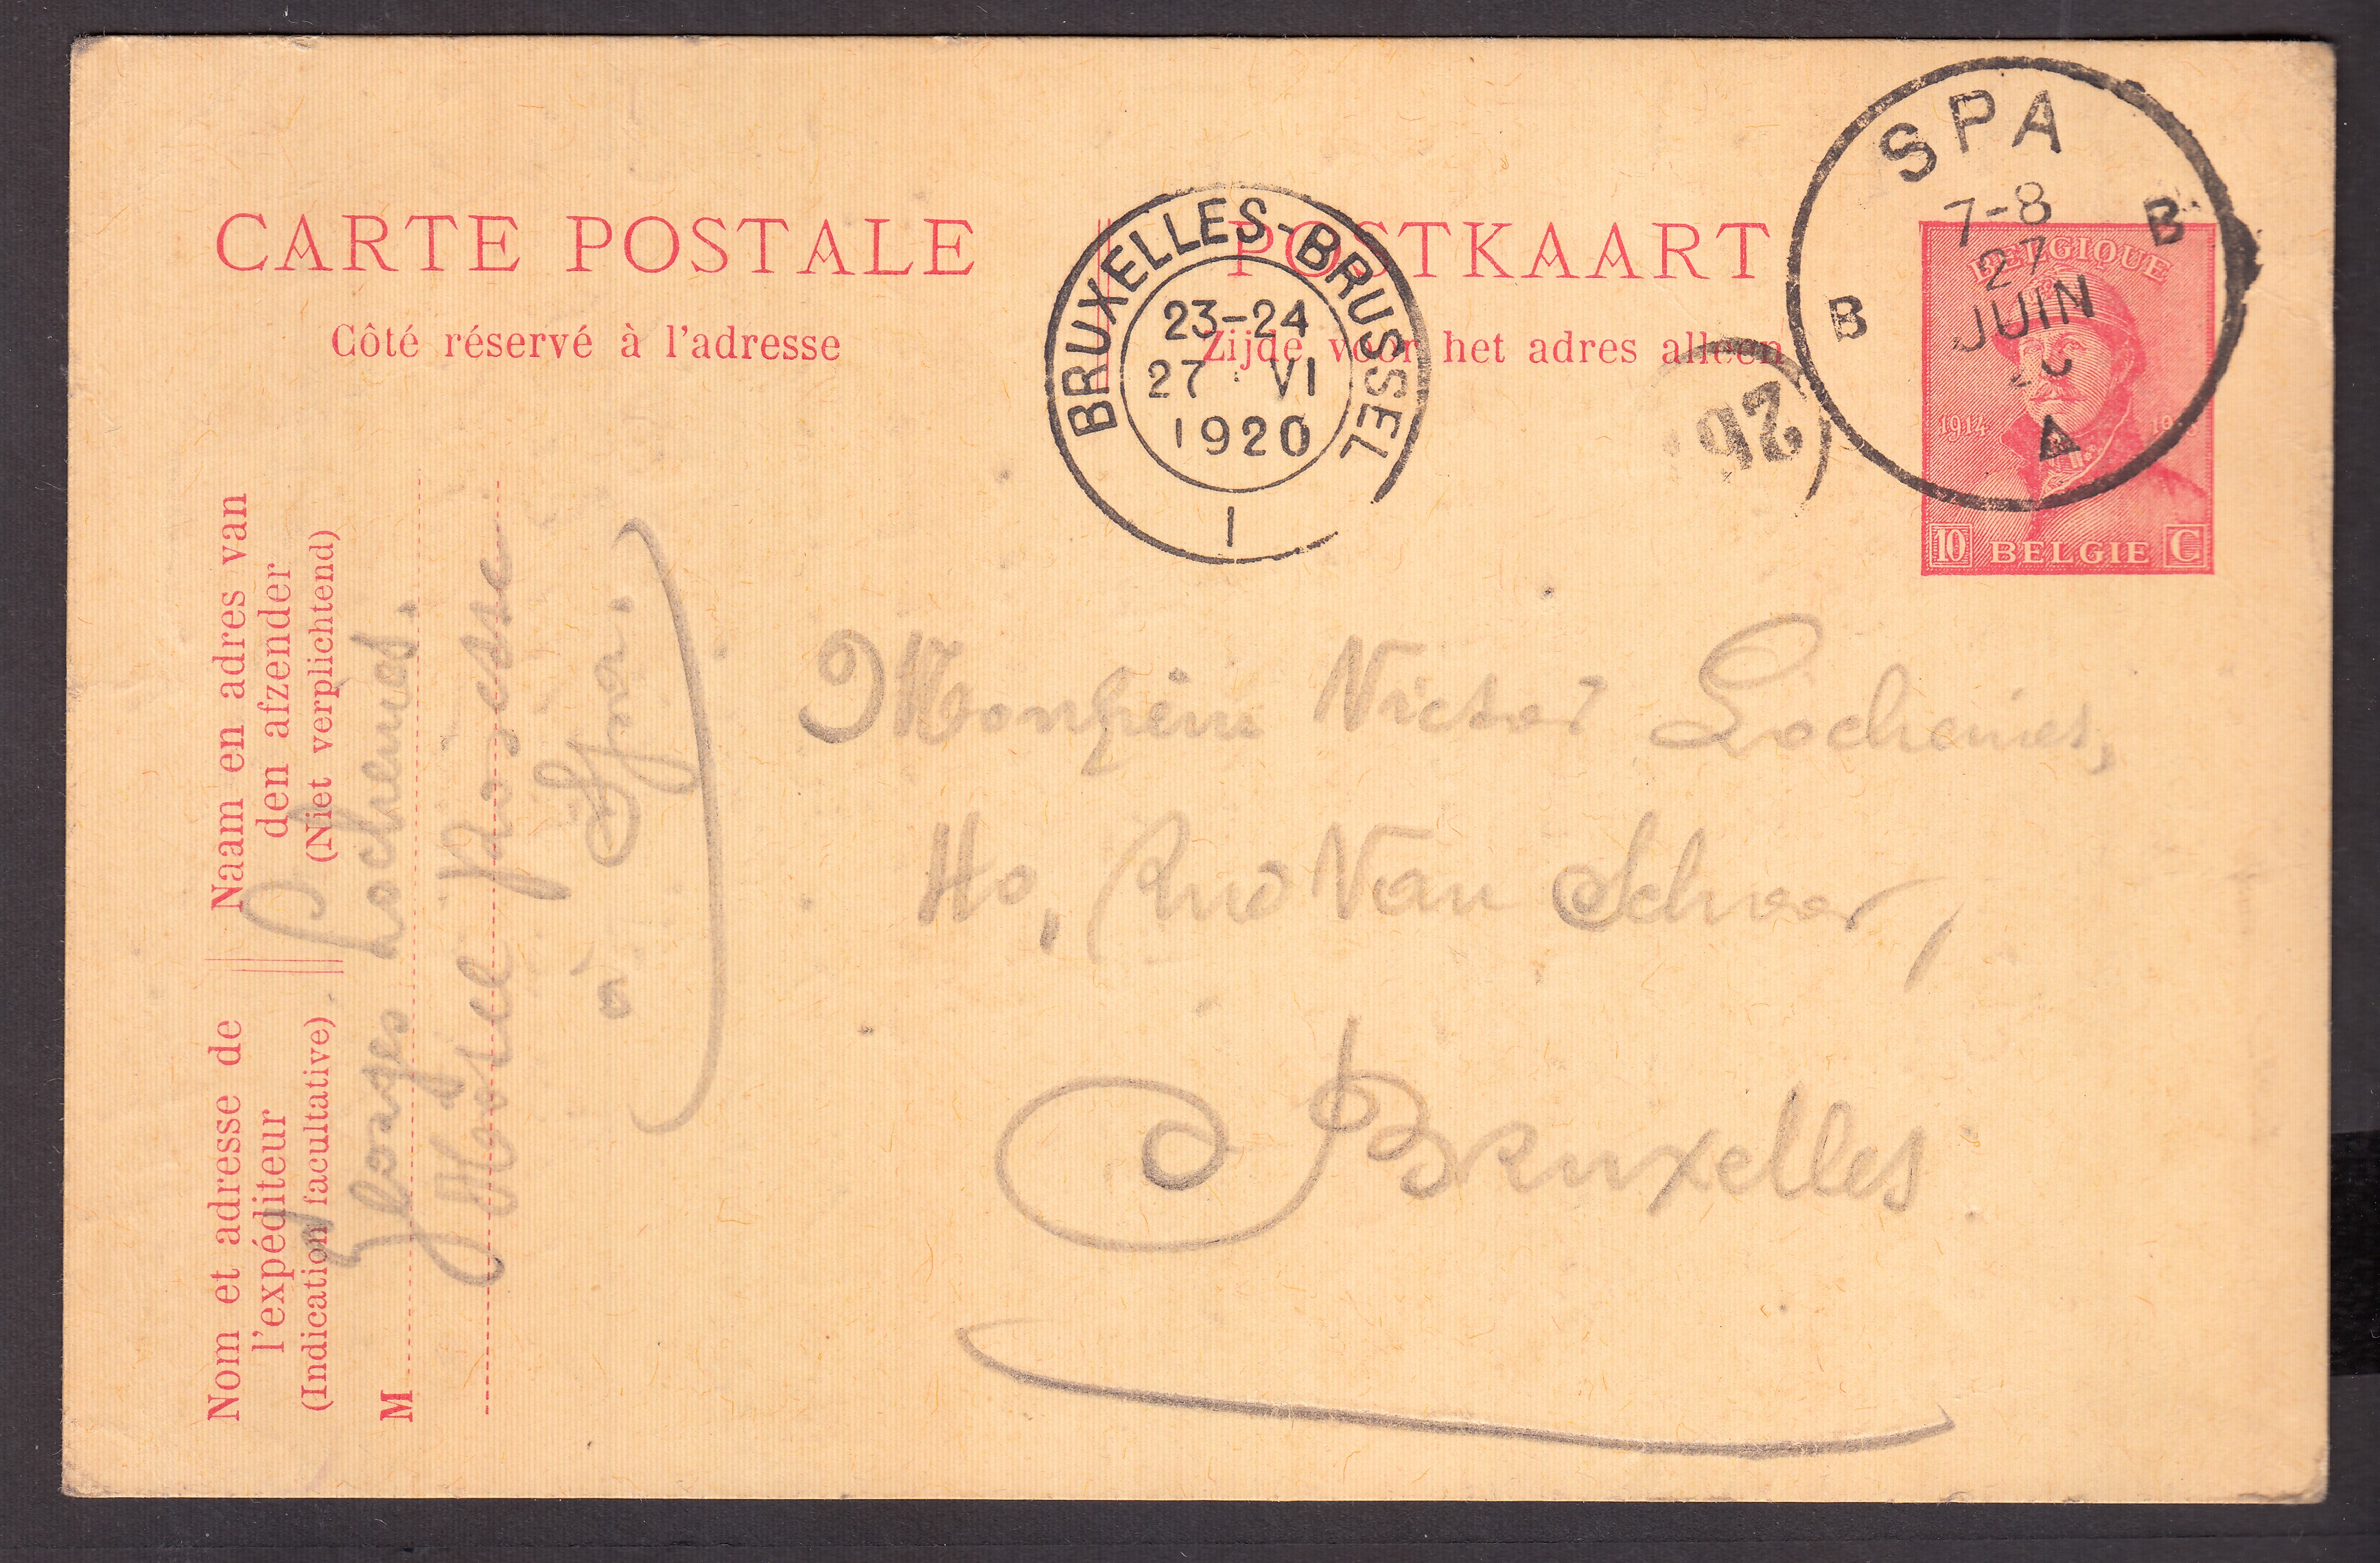 CARTE POSTALE
POSTKAART
Côté réservé à l'adresse
Zijde voor het adres alleen
BRUXELLES-BRUSSEL
23-24
27 VI
1920
1
SPA
7-8
27
JUIN
B
B
A
26
BELGIQUE
1914
10 BELGIE C
Naam en adres van
den afzender
(Niet verplichtend)
Nom et adresse de
l'expéditeur
(Indication facultative)
M
Georges Lochemes.
Hôtel
à Spa.
Monsieur Victor Lochemes,
Rue Van Schoor,
à Bruxelles.